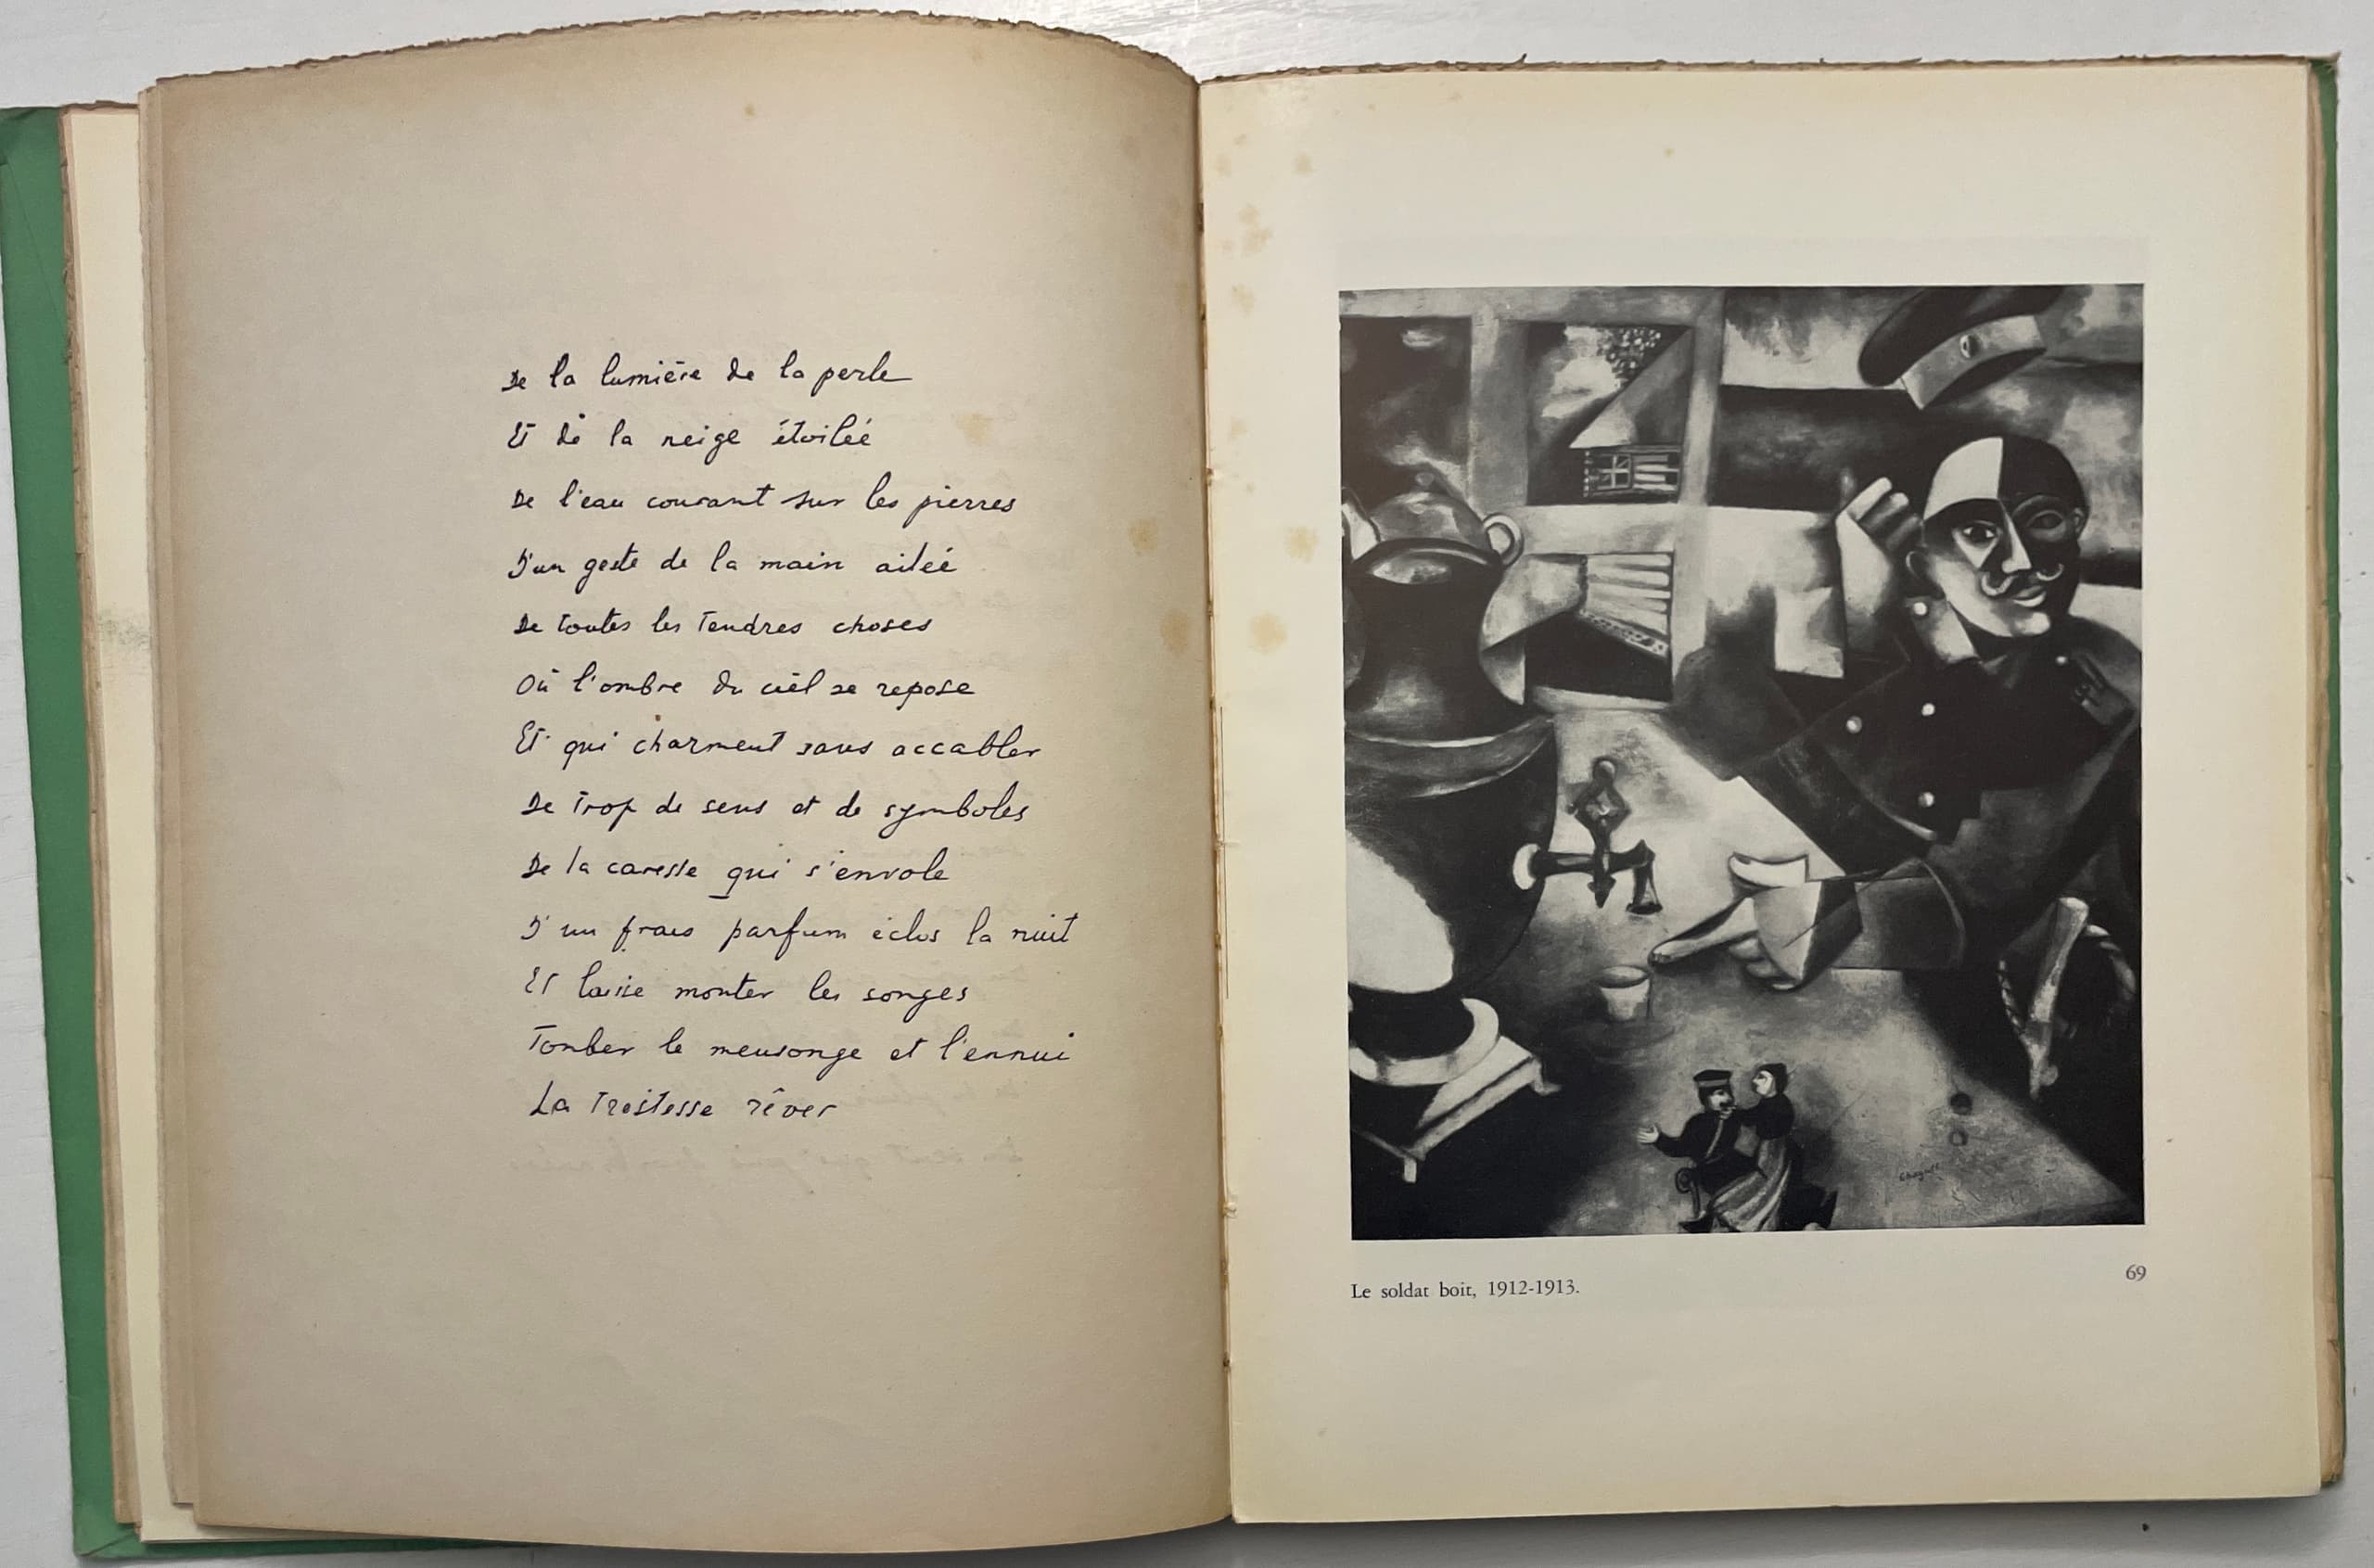 De la lumière de la perle
Et de la neige étoilée
De l'eau courant sur les pierres
D'un geste de la main ailée
De toutes les tendres choses
Où l'ombre du ciel se repose
Et qui charment sans accabler
De trop de sens et de symboles
De la caresse qui s'envole
D'un frais parfum éclos la nuit
Et laisse monter les songes
Tomber le mensonge et l'ennui
La tristesse rêver
Chagall
Le soldat boit, 1912-1913.
69